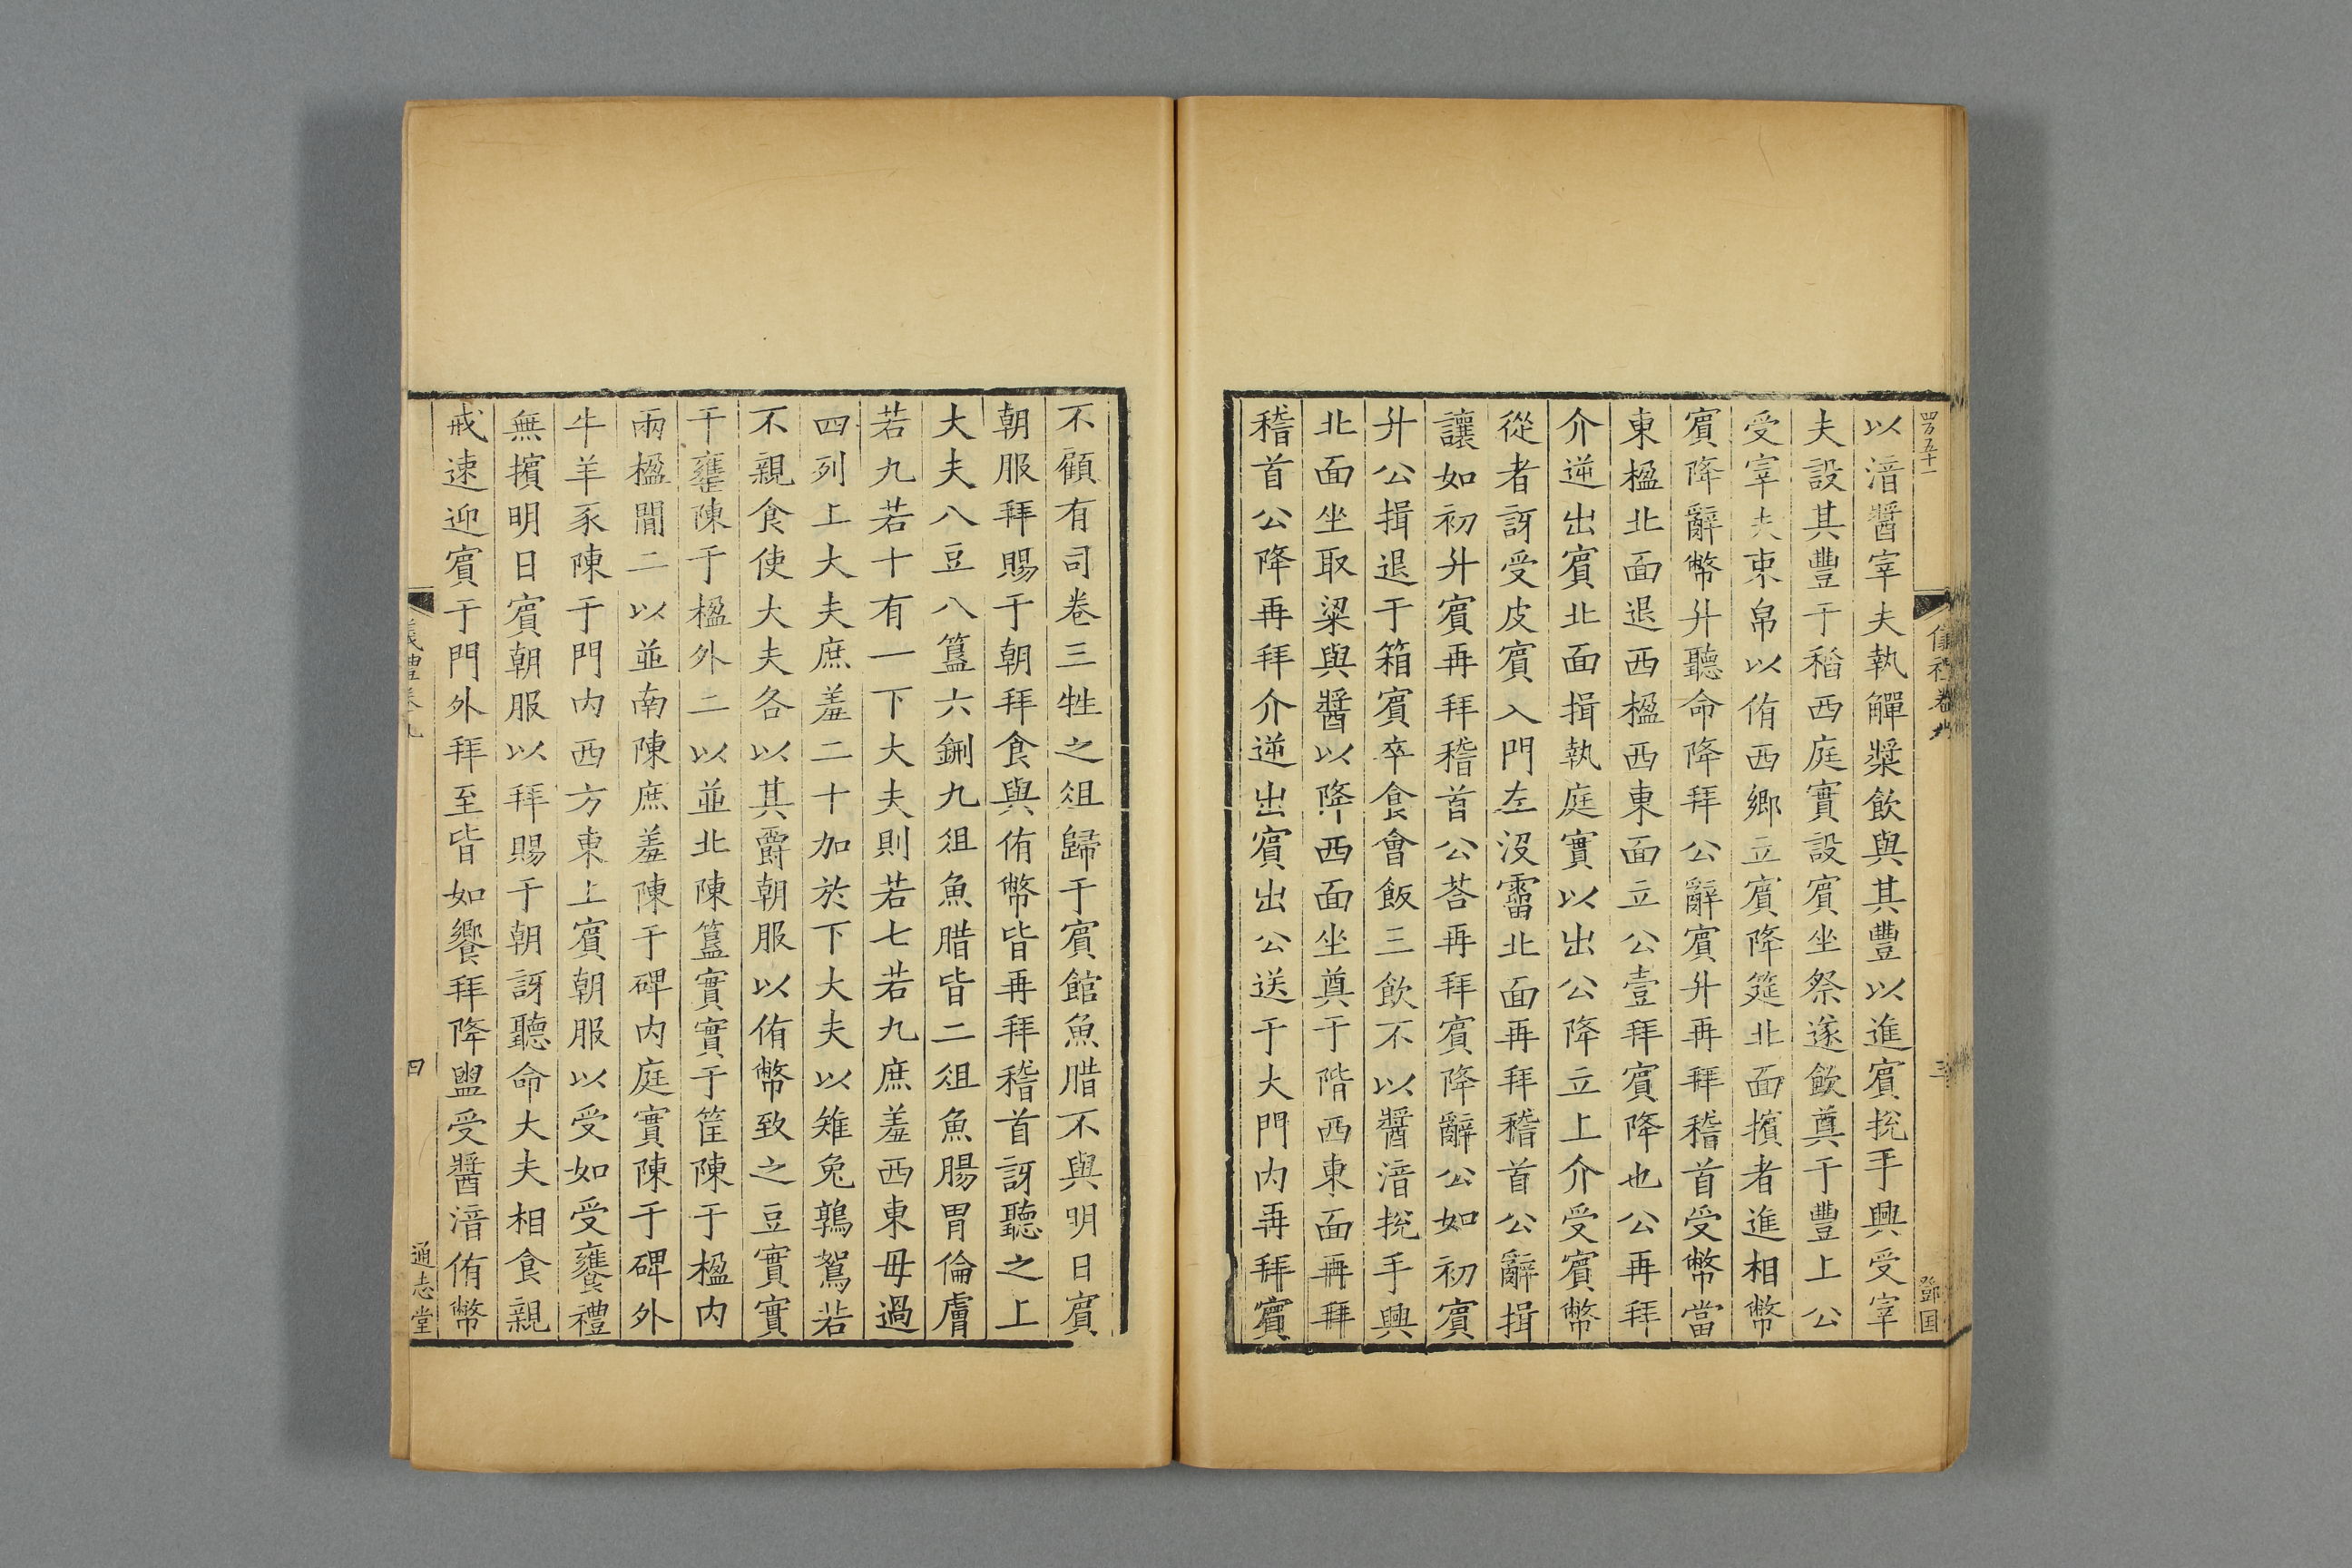 四百五十一
儀禮卷九
三
鄧国
以湆醬宰夫執觶漿飲與其豐以進賓挩手興受宰
夫設其豐于稻西庭實設賓坐祭遂飲奠于豐上公
受宰夫束帛以侑西鄉立賓降筵北面擯者進相幣
賓降辭幣升聽命降拜公辭賓升再拜稽首受幣當
東楹北面退西楹西東面立公壹拜賓降也公再拜
介逆出賓北面揖執庭實以出公降立上介受賓幣
從者訝受皮賓入門左沒霤北面再拜稽首公辭揖
讓如初升賓再拜稽首公荅再拜賓降辭公如初賓
升公揖退于箱賓卒食會飯三飲不以醬湆挩手興
北面坐取粱與醬以降西面坐奠于階西東面再拜
稽首公降再拜介逆出賓出公送于大門内再拜賓
不顧有司卷三牲之俎歸于賓館魚腊不與明日賓
朝服拜賜于朝拜食與侑幣皆再拜稽首訝聽之上
大夫八豆八簋六鉶九俎魚腊皆二俎魚腸胃倫膚
若九若十有一下大夫則若七若九庶羞西東毋過
四列上大夫庶羞二十加於下大夫以雉兔鶉鴽若
不親食使大夫各以其爵朝服以侑幣致之豆實實
于罋陳于楹外二以並北陳簋實實于筐陳于楹内
兩楹閒二以並南陳庶羞陳于碑内庭實陳于碑外
牛羊豕陳于門内西方東上賓朝服以受如受饔禮
無擯明日賓朝服以拜賜于朝訝聽命大夫相食親
戒速迎賓于門外拜至皆如饗拜降盥受醬湆侑幣
儀禮卷九
四
通志堂